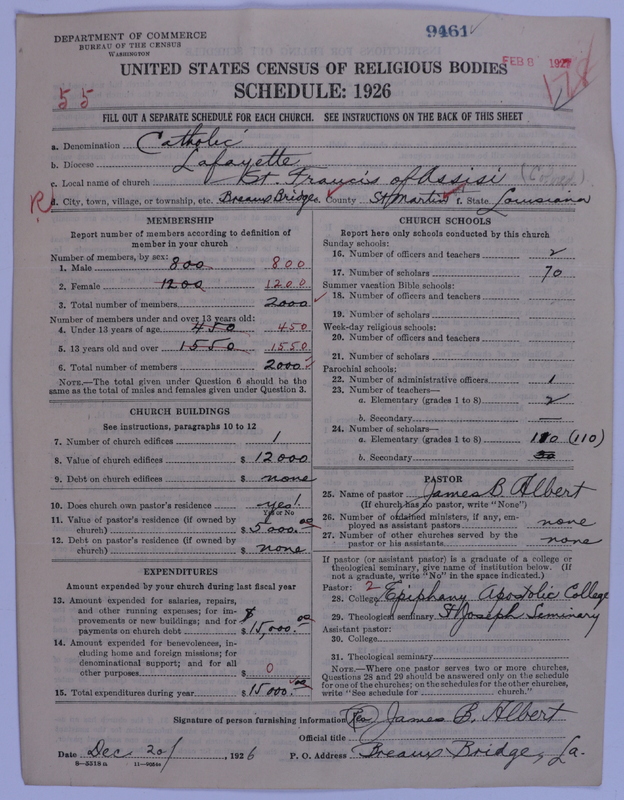 DEPARTMENT OF COMMERCE
BUREAU OF THE CENSUS
WASHINGTON
9461
FEB 8 1927
178
UNITED STATES CENSUS OF RELIGIOUS BODIES
SCHEDULE: 1926
55
FILL OUT A SEPARATE SCHEDULE FOR EACH CHURCH. SEE INSTRUCTIONS ON THE BACK OF THIS SHEET
a. Denomination Catholic
b. Diocese Lafayette
c. Local name of church St. Francis of Assisi (Colored)
R
d. City, town, village, or township, etc. Breaux Bridge e. County St Martin f. State Louisiana
MEMBERSHIP
Report number of members according to definition of
member in your church
Number of members, by sex:
1. Male 800 800
2. Female 1200 1200
3. Total number of members 2000
Number of members under and over 13 years old:
4. Under 13 years of age 450 450
5. 13 years old and over 1550 1550
6. Total number of members 2000
NOTE.—The total given under Question 6 should be the
same as the total of males and females given under Question 3.
CHURCH BUILDINGS
See instructions, paragraphs 10 to 12
7. Number of church edifices 1
8. Value of church edifices $ 12000
9. Debt on church edifices $ none
10. Does church own pastor's residence yes!
Yes or No
11. Value of pastor's residence (if owned by
church) $ 5000.00
12. Debt on pastor's residence (if owned by
church) $ none
EXPENDITURES
Amount expended by your church during last fiscal year
13. Amount expended for salaries, repairs,
and other running expenses; for im-
provements or new buildings; and for
payments on church debt $ 15,000.00
14. Amount expended for benevolences, in-
cluding home and foreign missions; for
denominational support; and for all
other purposes $ 0
15. Total expenditures during year $ 15000.00
CHURCH SCHOOLS
Report here only schools conducted by this church
Sunday schools:
16. Number of officers and teachers 2
17. Number of scholars 70
Summer vacation Bible schools:
18. Number of officers and teachers
19. Number of scholars
Week-day religious schools:
20. Number of officers and teachers
21. Number of scholars
Parochial schools:
22. Number of administrative officers 1
23. Number of teachers—
a. Elementary (grades 1 to 8) 2
b. Secondary
24. Number of scholars—
a. Elementary (grades 1 to 8) 110 (110)
b. Secondary
PASTOR
25. Name of pastor James B. Albert
(If church has no pastor, write "None")
26. Number of ordained ministers, if any, em-
ployed as assistant pastors none
27. Number of other churches served by the
pastor or his assistants none
If pastor (or assistant pastor) is a graduate of a college or
theological seminary, give name of institution below. (If
not a graduate, write "No" in the space indicated.)
Pastor: 2
28. College Epiphany Apostolic College
29. Theological seminary St Joseph Seminary
Assistant pastor:
30. College
31. Theological seminary
NOTE.—Where one pastor serves two or more churches,
Questions 28 and 29 should be answered only on the schedule
for one of the churches; on the schedules for the other churches,
write "See schedule for church."
Signature of person furnishing information (Rev.) James B. Albert
Official title
Date Dec 20, 1926 P. O. Address Breaux Bridge, La.
8—5518a 11—9055a